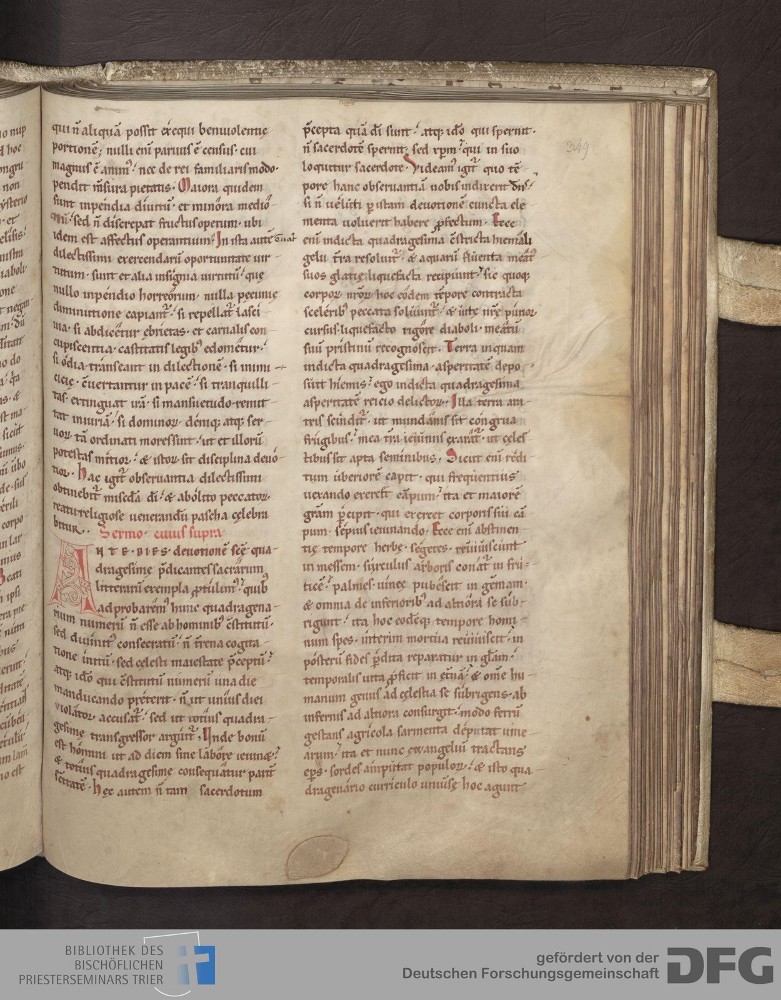 qui n̄ aliquā possit exequi beniuolentię
portionē; nulli enī paruus ē census. cui
magnus ē anim9. nec de rei familiaris modo
pendit m̄sura pietatis. Maiora quidem
sunt inpendia diuitū. et minora medio
criū. sed n̄ discrepat fructus operum. ubi
idem est affectus operantium. In ista autē
dilectissimi exercendarū oportunitate uir
tutum. sunt et alia insignia uirtutū. que
nullo inpendio horreorum. nulla pecunie
diminutione capiant᷑. si repellat᷑ lasci
uia. si abdicetur ebrietas. et carnalis con
cupiscentia. castitatis legib9 edometur.
si odia transeant in dilectionē. si inimi
citię. ēuertantur in pacē. si tranquilli
tas. extinguat irā. si mansuetudo remit
tat iniuriā. si dominor. deniq; atq; ser
uor. tā ordinati mores sint. ut et illorū
potestas mitior. & istor. sit disciplina deuo
tior. Hac igit᷑ obseruantia dilectissimi
obtinebit᷑ miscd̄a dī. & abolito peccator.
reatu religiose uenerandū pascha celebra
bitur. Sermo. cuius supra
ANTE DIES. deuotionē scē qua
dragesime p̄dicantes sacrarum
litterarū exempla p̄tulim9. quib9
adprobarem9 hunc quadragena
rium numerū n̄ esse ab hominib9 c̄stitutū.
sed diuinit9 consecratū. n̄ trena cogita
tione initū. sed celesti maiestate p̄ceptū.
atq; ido qui c̄stitutū numerū una die
manducando pręterit. n̄ ut unius diei
uiolator. accusat᷑. sed ut totius quadra
gesime transgressor arguit᷑. Unde bonū
est homini ut ad diem sine labore ieiune.
& totius quadragesime consequatur parit̄
sc̄itatē. Hęc autem n̄ tam sacerdotum
p̄cepta quā dī sunt. atq; ido qui spernit.
n̄ sacerdotē spernit. sed xp̄m. qui in suo
loquitur sacerdote. Videam9 igit᷑ quo tē
pore hanc obseruantiā nobis indixerit dn̄s.
si n̄ uelūti p̄ istam deuotionē cuncta ele
menta uoluerit habere p̄fectum. Ecce
enī indicta quadragesima c̄stricta hiemali
gelu tr̄ra resoluit᷑. & aquarū fluenta meat9
suos glatie liquefacta recipiunt. sic quoq;
corpor. nr̄or. hoc eodem tēpore contracta
sceleribˀ peccata soluunt᷑. & uitę nr̄ę punor
cursus. liquefacto rigore diaboli. meatū
suū pristinū recognoscit. Terra inquam
indicta quadragesima. asperitatē depo
suit hiemis. ego indicta quadragesima
asperitatē reicio delictor. Illa terra ara
tris scindit᷑. ut mundanis sit congrua
frugibus. mea tr̄ra ieiuniis exarat᷑. ut celes
tibus sit apta seminibus. Dicunt enī redi
tum uberiorē capit. qui frequentius
uexando exercet cāpum. ita et maiorē
grām p̄cipit. qui exercet corporis sui cā
pum. sępius ieiunando. Ecce enī abstinen
tię tempore herbę. segetes. reuiuiscunt
in messem. surculus arboris conat᷑ in fru
ticē. palmes. uinee pubescit in gēmam.
& omnia de inferiorib9 ad altiora se sub
rigunt. ita hoc eodēq; tempore homi
num spes. interim mortua reuiuiscit. in
posterū fides p̄dita reparatur in glām.
temporalis uita p̄ficit in et̄nā. & omē hu
manum genus ad celestia se subrigens. ab
infernis ad altiora consurgit. modo ferrū
gestans agricola sarmenta dēputat uine
arum. ita et nunc ewangeliū tractans
ep̄s. sordes amputat populor. & isto qua
dragenario curriculo uniuse hoc agunt
249
BIBLIOTHEK DES
BISCHÖFLICHEN
PRIESTERSEMINARS TRIER
gefördert von der
Deutschen Forschungsgemeinschaft
DFG